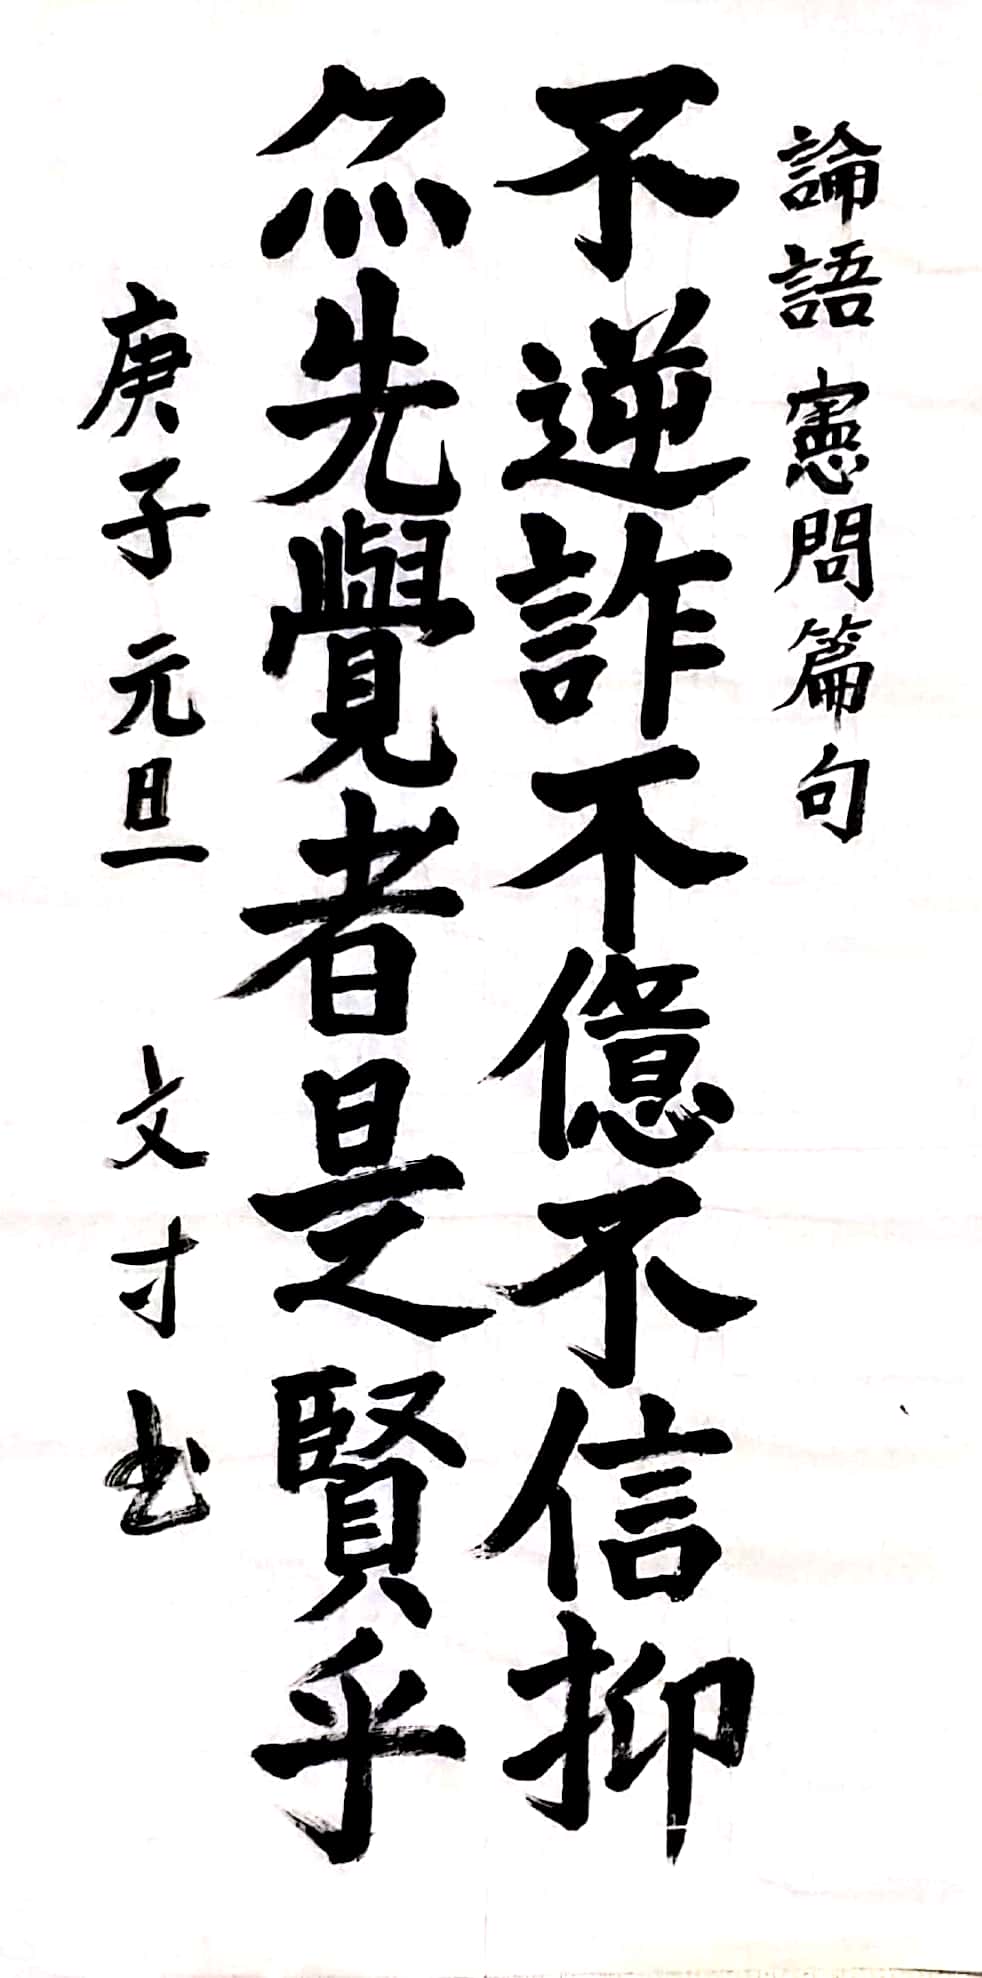 論語憲問篇句
不逆詐不億不信抑
亦先覺者是賢乎
庚子元旦 文寸书